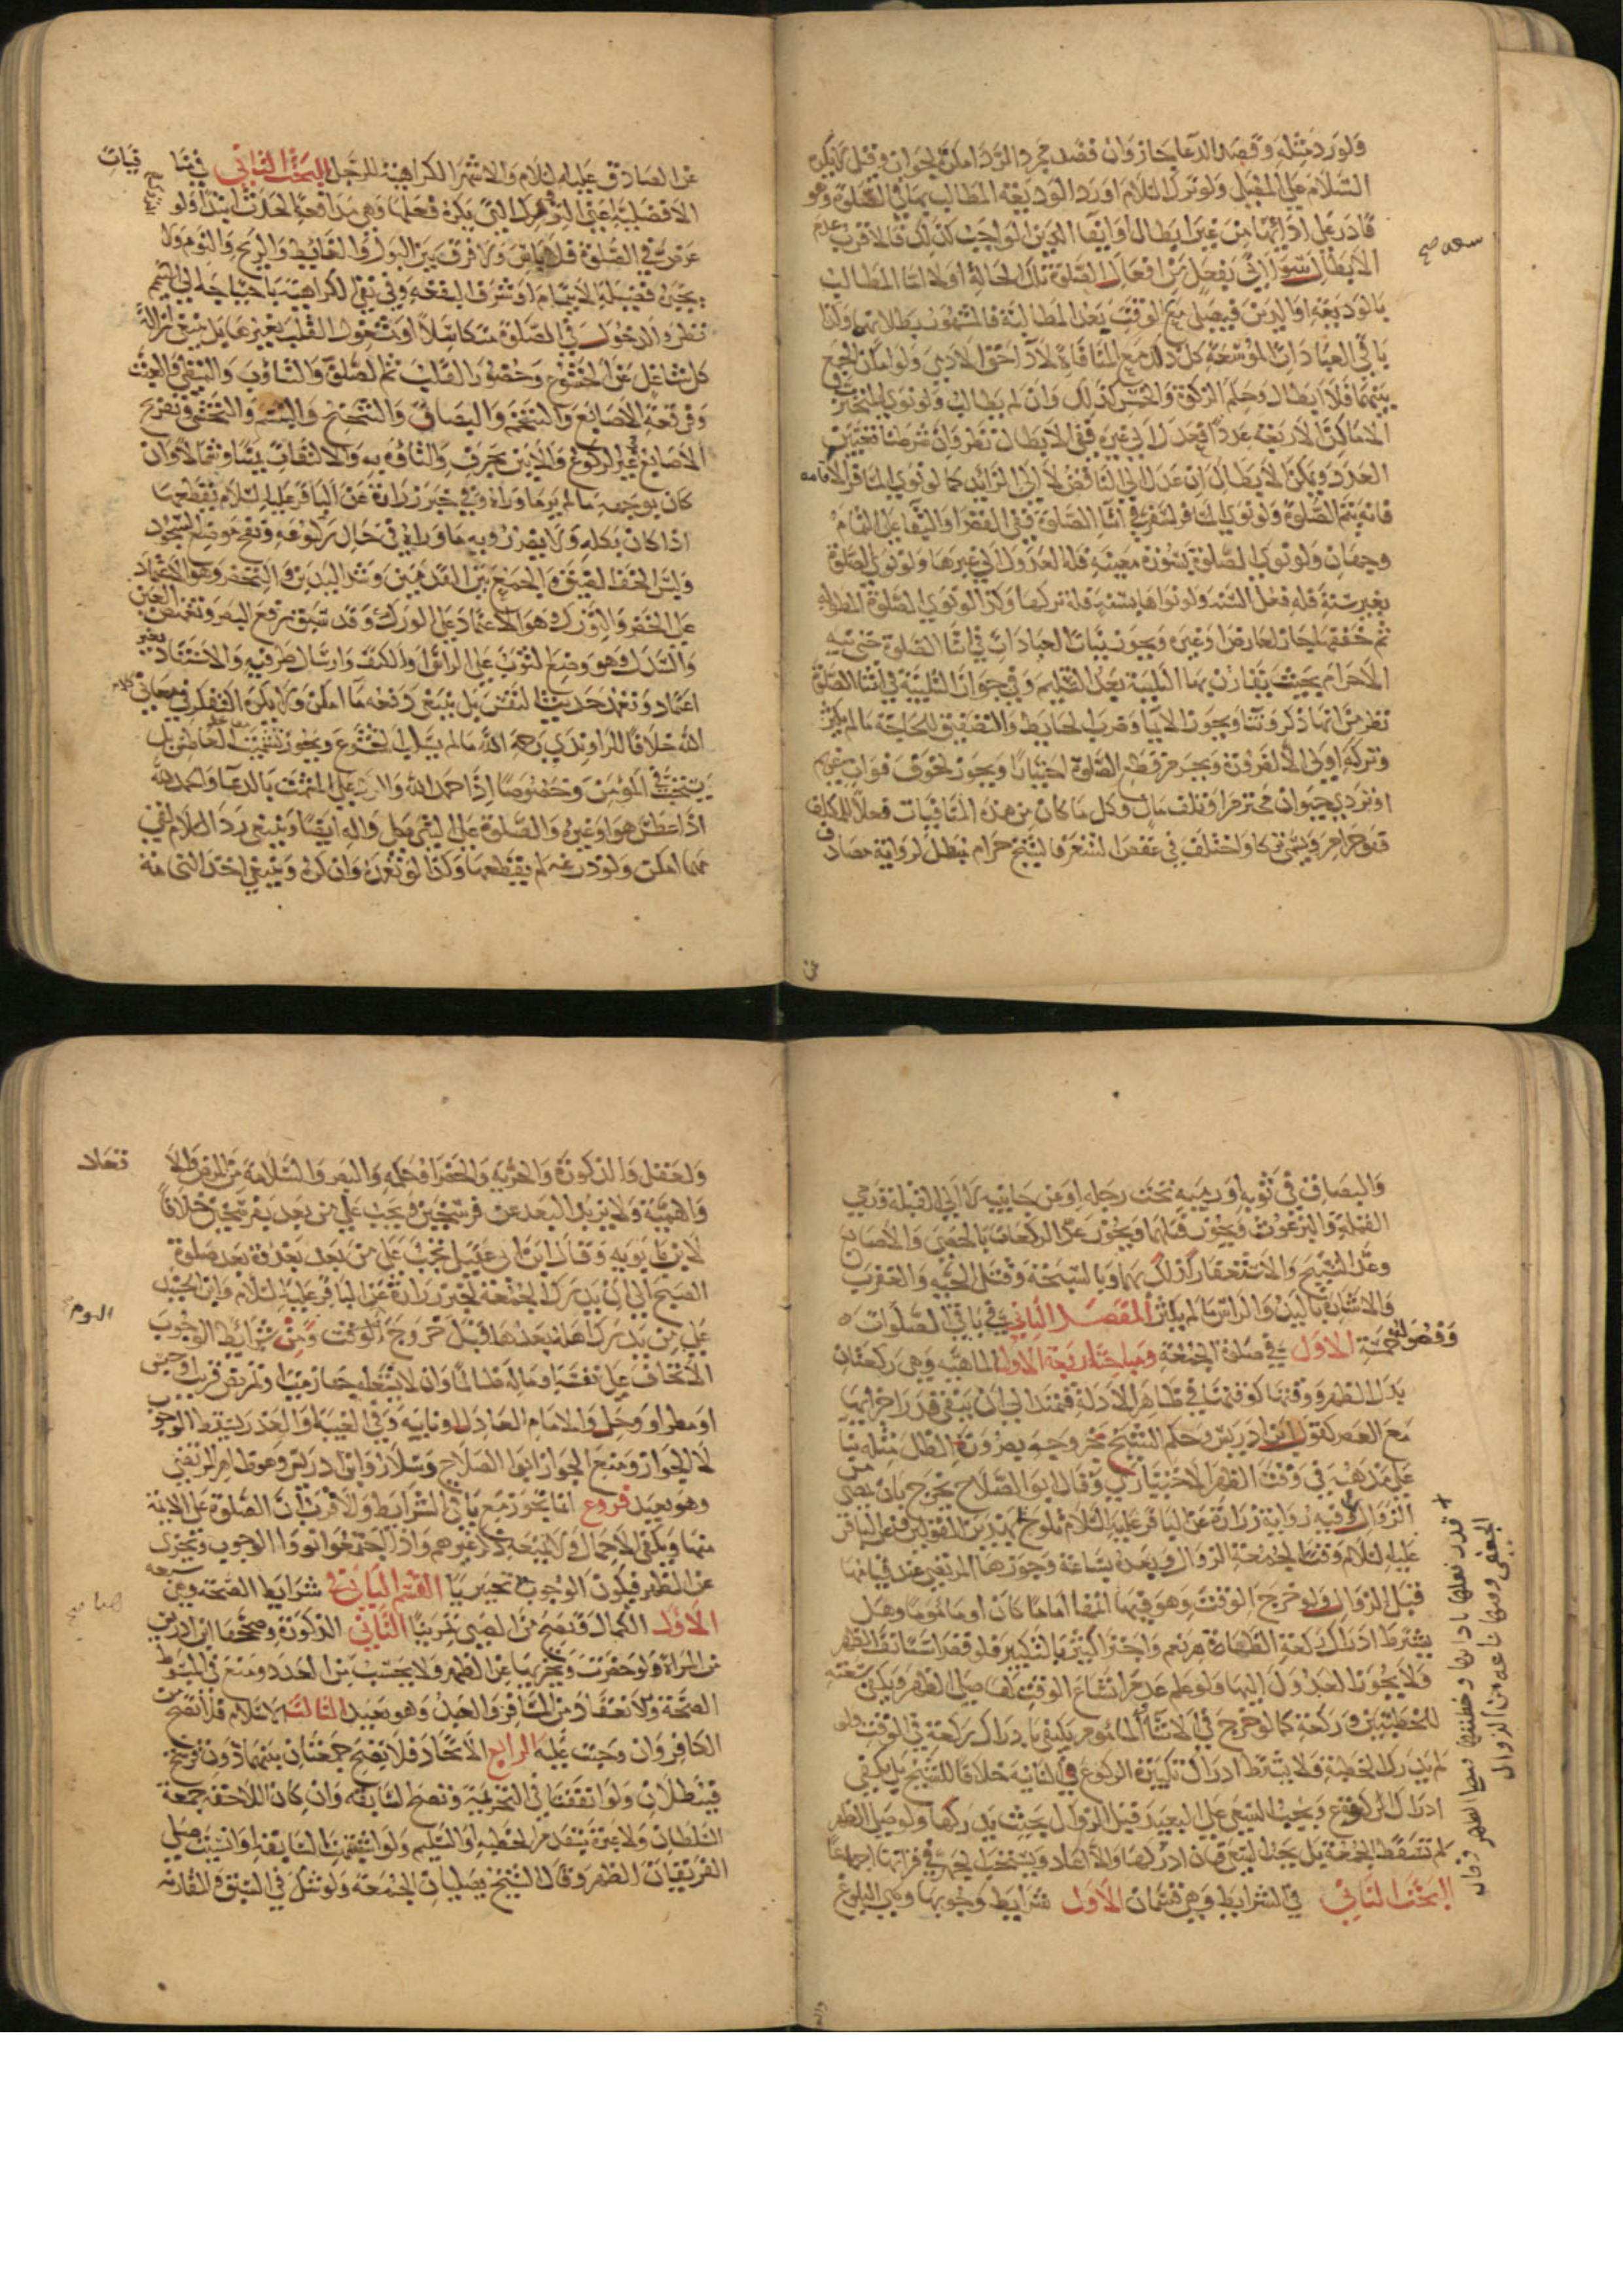 ولو رد مثله وقصد الدعا جاز وان قصد مجرد الرد امكن الجواز وقيل لا يكره
السلام علي المقبل ولو ترك السلام او رد الوديعة المطالب بها في الصلوة وهو
قادر علي ادائها من غير ابطال او ايفا الدين الواجب كذلك فالاقرب عدم
الابطال سوا اتي بفعل من افعال الصلوة تلك الحالة او لا اما المطالب
بالوديعة او الدين فيصلي مع الوقت بعد المطالبة فالمشهور بطلانها وكذا
باقي العبادات الموسعة كل ذلك مع المنافاة لادا حق الادمي ولو امكن الجمع
بينهما فلا ابطال وحكم الزكوة والخمس كذلك وان لم يطالب ولو نوي المتخير في
الاماكن الاربعة عددا فعدل الي غيره ففي الابطال نظر فان شرطنا تعيين
العدد ويمكن الابطال ان عدل الي الناقص لا الي الزائد كما لو نوي المسافر الاقامه
فانه يتم الصلوة ولو نوي المسافر السفر في اثنا الصلوة ففي القصر او البقا علي التمام
وجهان ولو نوي الصلوة بسورة معينة فله العدول الي غيرها ولو نوي الصلوة
بغير سنة فله فعل السنة ولو نواها بسنة فله تركها وكذا لو نوي الصلوة المطوله
ثم خففها جاز لعارض او غيره ويجوز نيات العبادات في اثنا الصلوة حتي نيه
الاحرام بحيث يقارن بها التلبية بعد التسليم وفي جواز التلبية في اثنا الصلوة
نظر من انها ذكر وثنا ويجوز الايما وضرب الحايط والتصفيق للحاجة ما لم يكثر
وتركه اولي الا لضرورة ويحرم قطع الصلوة اختيارا ويجوز لخوف فوات غريم
او تردي حيوان محترم او تلف مال وكل ما كان من هذه المنافيات فعلا للمكلف
فهو حرام واختلف في عقص الشعر فالشيخ حرام مبطل لرواية مصادف
سعه صح
عن الصادق عليه السلام والاشهر الكراهية للرجل البحث الثاني في منا فيات
الافضلية اعني التروك التي يكره فعلها وهي مدافعة الحدث ابتدا فلو
عرض في الصلوة فلا باس ولا فرق بين البول والغائط والريح والنوم ولا
يجبره فضيلة الائتمام او شرف البقعة وفي نفي الكراهية باحتياجه الي التيمم
نظر والدخول في الصلوة متكاسلا او مشغول القلب بغيرها بل ينبغي ازالة
كل شاغل عن الخشوع وحضور القلب ثم الصلوة والتثاؤب والتمطي والعبث
وفرقعة الاصابع والتنخم والبصاق والتنحنح والتبسم والتخصر وتفريج
الاصابع غير الركوع والانين بحرف والتاوه به والالتفات يمينا وشمالا وان
كان بوجهه ما لم ير ما وراه وفي خبر زرارة عن الباقر عليه السلام تقطعها
اذا كان بكله ولا يضر رويه ما وراه في حال ركوعه ونفخ موضع السجود
ولبس الخف الضيق والجمع بين القدمين وشد اليدين والتخصر وهو الاعتماد
علي الخصر والتورك وهو الاعتماد علي الورك وقد سبق رفع البصر وتغميض العين
والسدل وهو وضع الثوب علي الراس او الكتف وارسال طرفيه والاستناد بغير
اعتماد وتعمد حديث النفس بل ينبغي دفعه ما امكن ولا يكره التفكر في معاني كلام
الله خلافا للراوندي رحمه الله ما لم يسلب الخشوع ويجوز تشميت العاطس بل
يستحب في المومن وخصوصا اذا حمد الله والرد علي المشمت بالدعا والحمد لله
اذا عطس هو او غيره والصلوة علي النبي صلي واله ايضا وينبغي رد السلام الخفي
مهما امكن ولو ذرعه لم يقطعها وكذا لو تعمده وان كره وينبغي اخذ النخامة
والبصاق في ثوبه او رميه تحت رجله او عن جانبيه لا الي القبلة ورمي
القملة والبرغوث ويجوز قتلهما ويجوز عد الركعات بالحصي والاصابع
وعد التسبيح والاستغفار كذلك بهما وبالسبحة وقتل الحية والعقرب
والاشارة باليد والراس ما لم يكثر المقصد الثاني في باقي الصلوات
وفصوله خمسة الاول في صلوة الجمعة ومباحثه اربعة الاول الماهية وهي ركعتان
بدل الظهر ووقتها كوقتها في ظاهر الادلة فيمتد الي ان يبقي قدر اجزائها
مع العصر كقول ابن ادريس وحكم الشيخ بخروجه بصيرورة الظل مثله بنا
علي مذهبه في وقت الظهر الاختياري وقال ابو الصلاح يخرج بان يمضي من
الزوال وفيه رواية زرارة عن الباقر عليه السلام تلوح بهذين القولين فعن الباقر
عليه السلام وقت الجمعة الزوال وبعده بساعة وجوزها المرتضي عند قيامها
قبل الزوال ولو خرج الوقت وهو فيها اتمها اماما كان او ماموما وهل
يشترط ادراك ركعة الظاهر نعم واجتزا كثير بالتكبير فلو قصر استانف الظهر
ولا يجوز العدول اليها ولو علم عدم اتساع الوقت لها صلي الظهر ويكفي سعته
للخطبتين وركعة كما لو خرج في الاثنا المامومر يكتفي بادراك ركعة في الوقت ولو
لم يدرك الخطبة ولا يشترط ادراك تكبيرة الركوع في الثانية خلافا للشيخ بل يكفي
ادراك الركوع ويجب السعي علي البعيد قبل الزوال بحيث يدركها ولو صلي الظهر
لم تسقط الجمعة بل يجب السعي فان ادركها والا اعاد ويستحب الجهر في قراتها اجماعا
البحث الثاني في الشرايط وهي قسمان الاول شرايط وجوبها وهي البلوغ
قدر فعلها باذانها وخطبتها نصا الظهر وقال
الجعفي وقتها ساعه من الزوال
والعقل والذكورة والحرية والحضر او حكمه والبصر والسلامة من المرض والا قعاد
والهمية ولا يزيد البعد عن فرسخين فيجب علي من بعد بفرسخين خلافا
لابن بابويه وقال ابن ابي عقيل تجب علي من بعد بعدوة بعد صلوة
الصبح الي ان يدرك الجمعة لخبر زرارة عن الباقر عليه السلام وابن الجنيد
علي من يدرك اهله بعدها قبل خروج الوقت ومن شرايط الوجوب
الا يخاف علي نفسه او ماله ظالما وان لا يشغله جهاز ميت او تمريض قريب او حبس
او مطر او وحل والامام العادل او نايبه وفي الغيبة او العذر يسقط الوجوب
لا الجواز ومنع الجواز ابو الصلاح وسلار وابن ادريس وهو ظاهر المرتضي
وهو بعيد فروع انما تجوز مع باقي الشرايط والاقرب ان الصلوة علي الائمة
منها ويكفي الاجمال ولا تمنعه ذكر غيرهم واذا اجتمعوا نووا الوجوب وتجزي
عن الظهر فيكون الوجوب تخييريا القسم الثاني شرايط الصحة وهي سبعه
الاول الكمال فتصح من الصبي تمرينا الثاني الذكورة وصححها ابن ادريس
من المراة ولو حضرت وتجزيها عن الظهر ولا يحتسب من العدد ومنع في المبسوط
الصحة والانعقاد من المسافر والعبد وهو بعيد الثالث الاسلام فلا تصح من
الكافر وان وجبت عليه الرابع الاتحاد فلا تصح جمعتان بينهما دون فرسخ
فيبطلان ولو اتفقتا في التحريمة وتصح السابقة وان كان اللاحقة جمعة
السلطان ولا عبرة بتقدم الخطبة او التسليم ولو اشتبهت السابقة او نسيت صلي
الفريقان الظهر وقال الشيخ يصليان الجمعة ولو شك في السبق والمقارنه